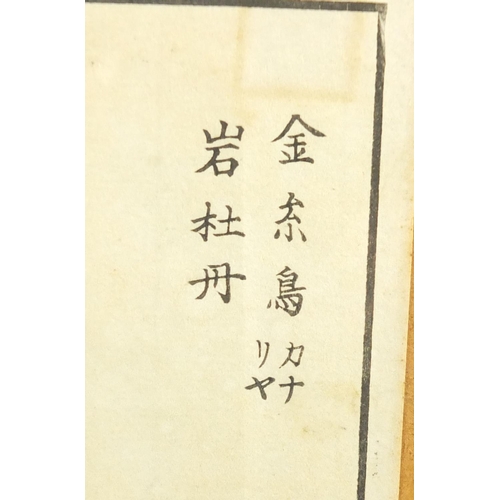 金糸鳥カナリヤ
岩杜丹